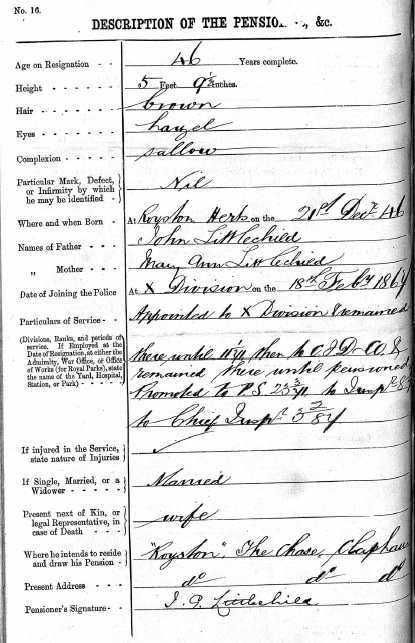 No. 16.
DESCRIPTION OF THE PENSIO , &c.
Age on Resignation - - 46 Years complete.
Height - - - - - - 5 Feet 9½ Inches.
Hair - - - - - - - brown
Eyes - - - - - - hazel
Complexion - - - - - sallow
Particular Mark, Defect, or Infirmity by which he may be identified - Nil
Where and when Born - At Royston Herts on the 21st Decr 46
Names of Father - - - John Littlechild
„ Mother - - - Mary Ann Littlechild
Date of Joining the Police At X Division on the 18th Feby 1867
Particulars of Service - - Appointed to X Division & remained
(Divisions, Ranks, and periods of service. If Employed at the Date of Resignation, at either the Admiralty, War Office, or Office of Works (for Royal Parks), state the name of the Yard, Hospital, Station, or Park) - - - -
there until then to C.I.D.
remained there until pensioned
Promoted to P.S. to Inspr
to Chief Inspr
If injured in the Service, state nature of Injuries
If Single, Married, or a Widower - - - - - Married
Present next of Kin, or legal Representative, in case of Death - - - wife
Where he intends to reside and draw his Pension - "Royston", The Chase, Clapham
Present Address - - - do do do
Pensioner's Signature - - J. G. Littlechild